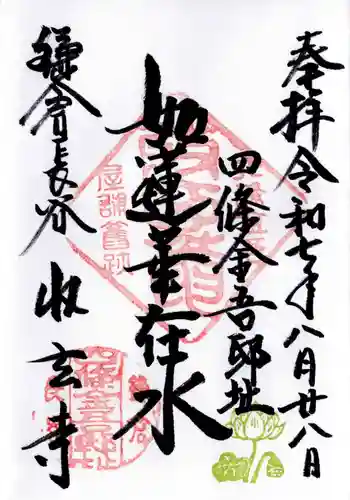 奉拝 令和七年八月廿八日
四條金吾邸址
如蓮華在水
鎌倉長谷 收玄寺